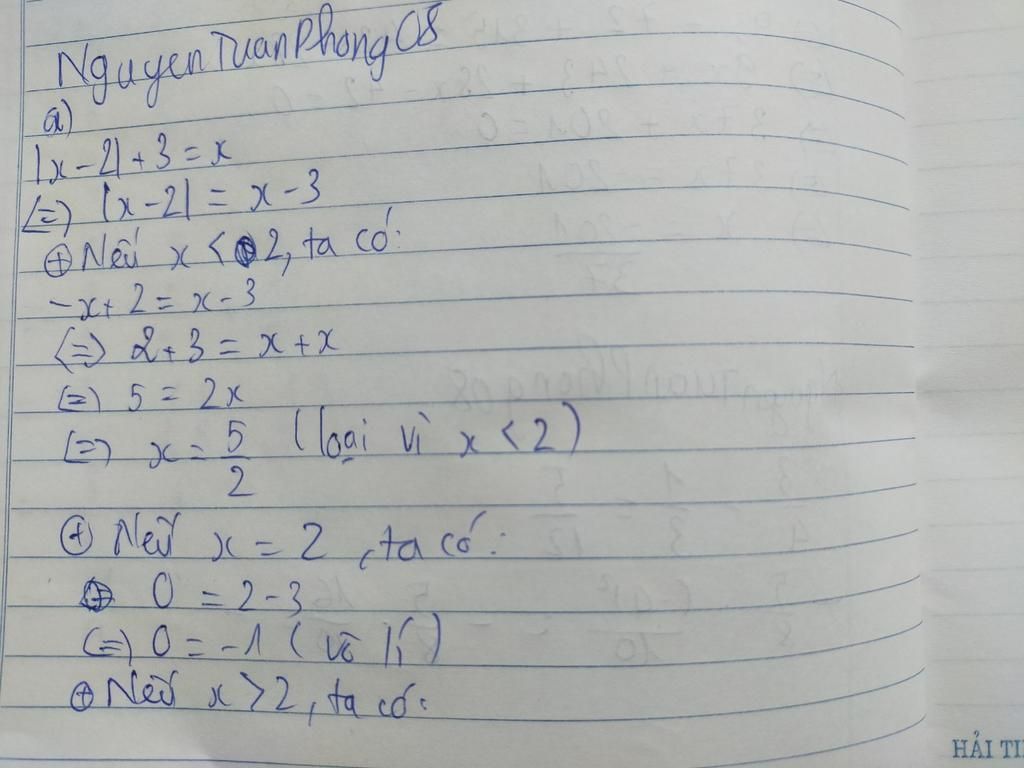 NguyenTuanPhong08
a)
|x-2|+3=x
(=) |x-2| = x-3
⊕ Nếu x < 2, ta có:
-x+2=x-3
(=) 2+3=x+x
(=) 5=2x
(=) x=5/2 (loại vì x<2)
⊕ Nếu x=2, ta có:
⊕ 0=2-3
(=) 0=-1 (vô lí)
⊕ Nếu x>2, ta có:
HẢI TI